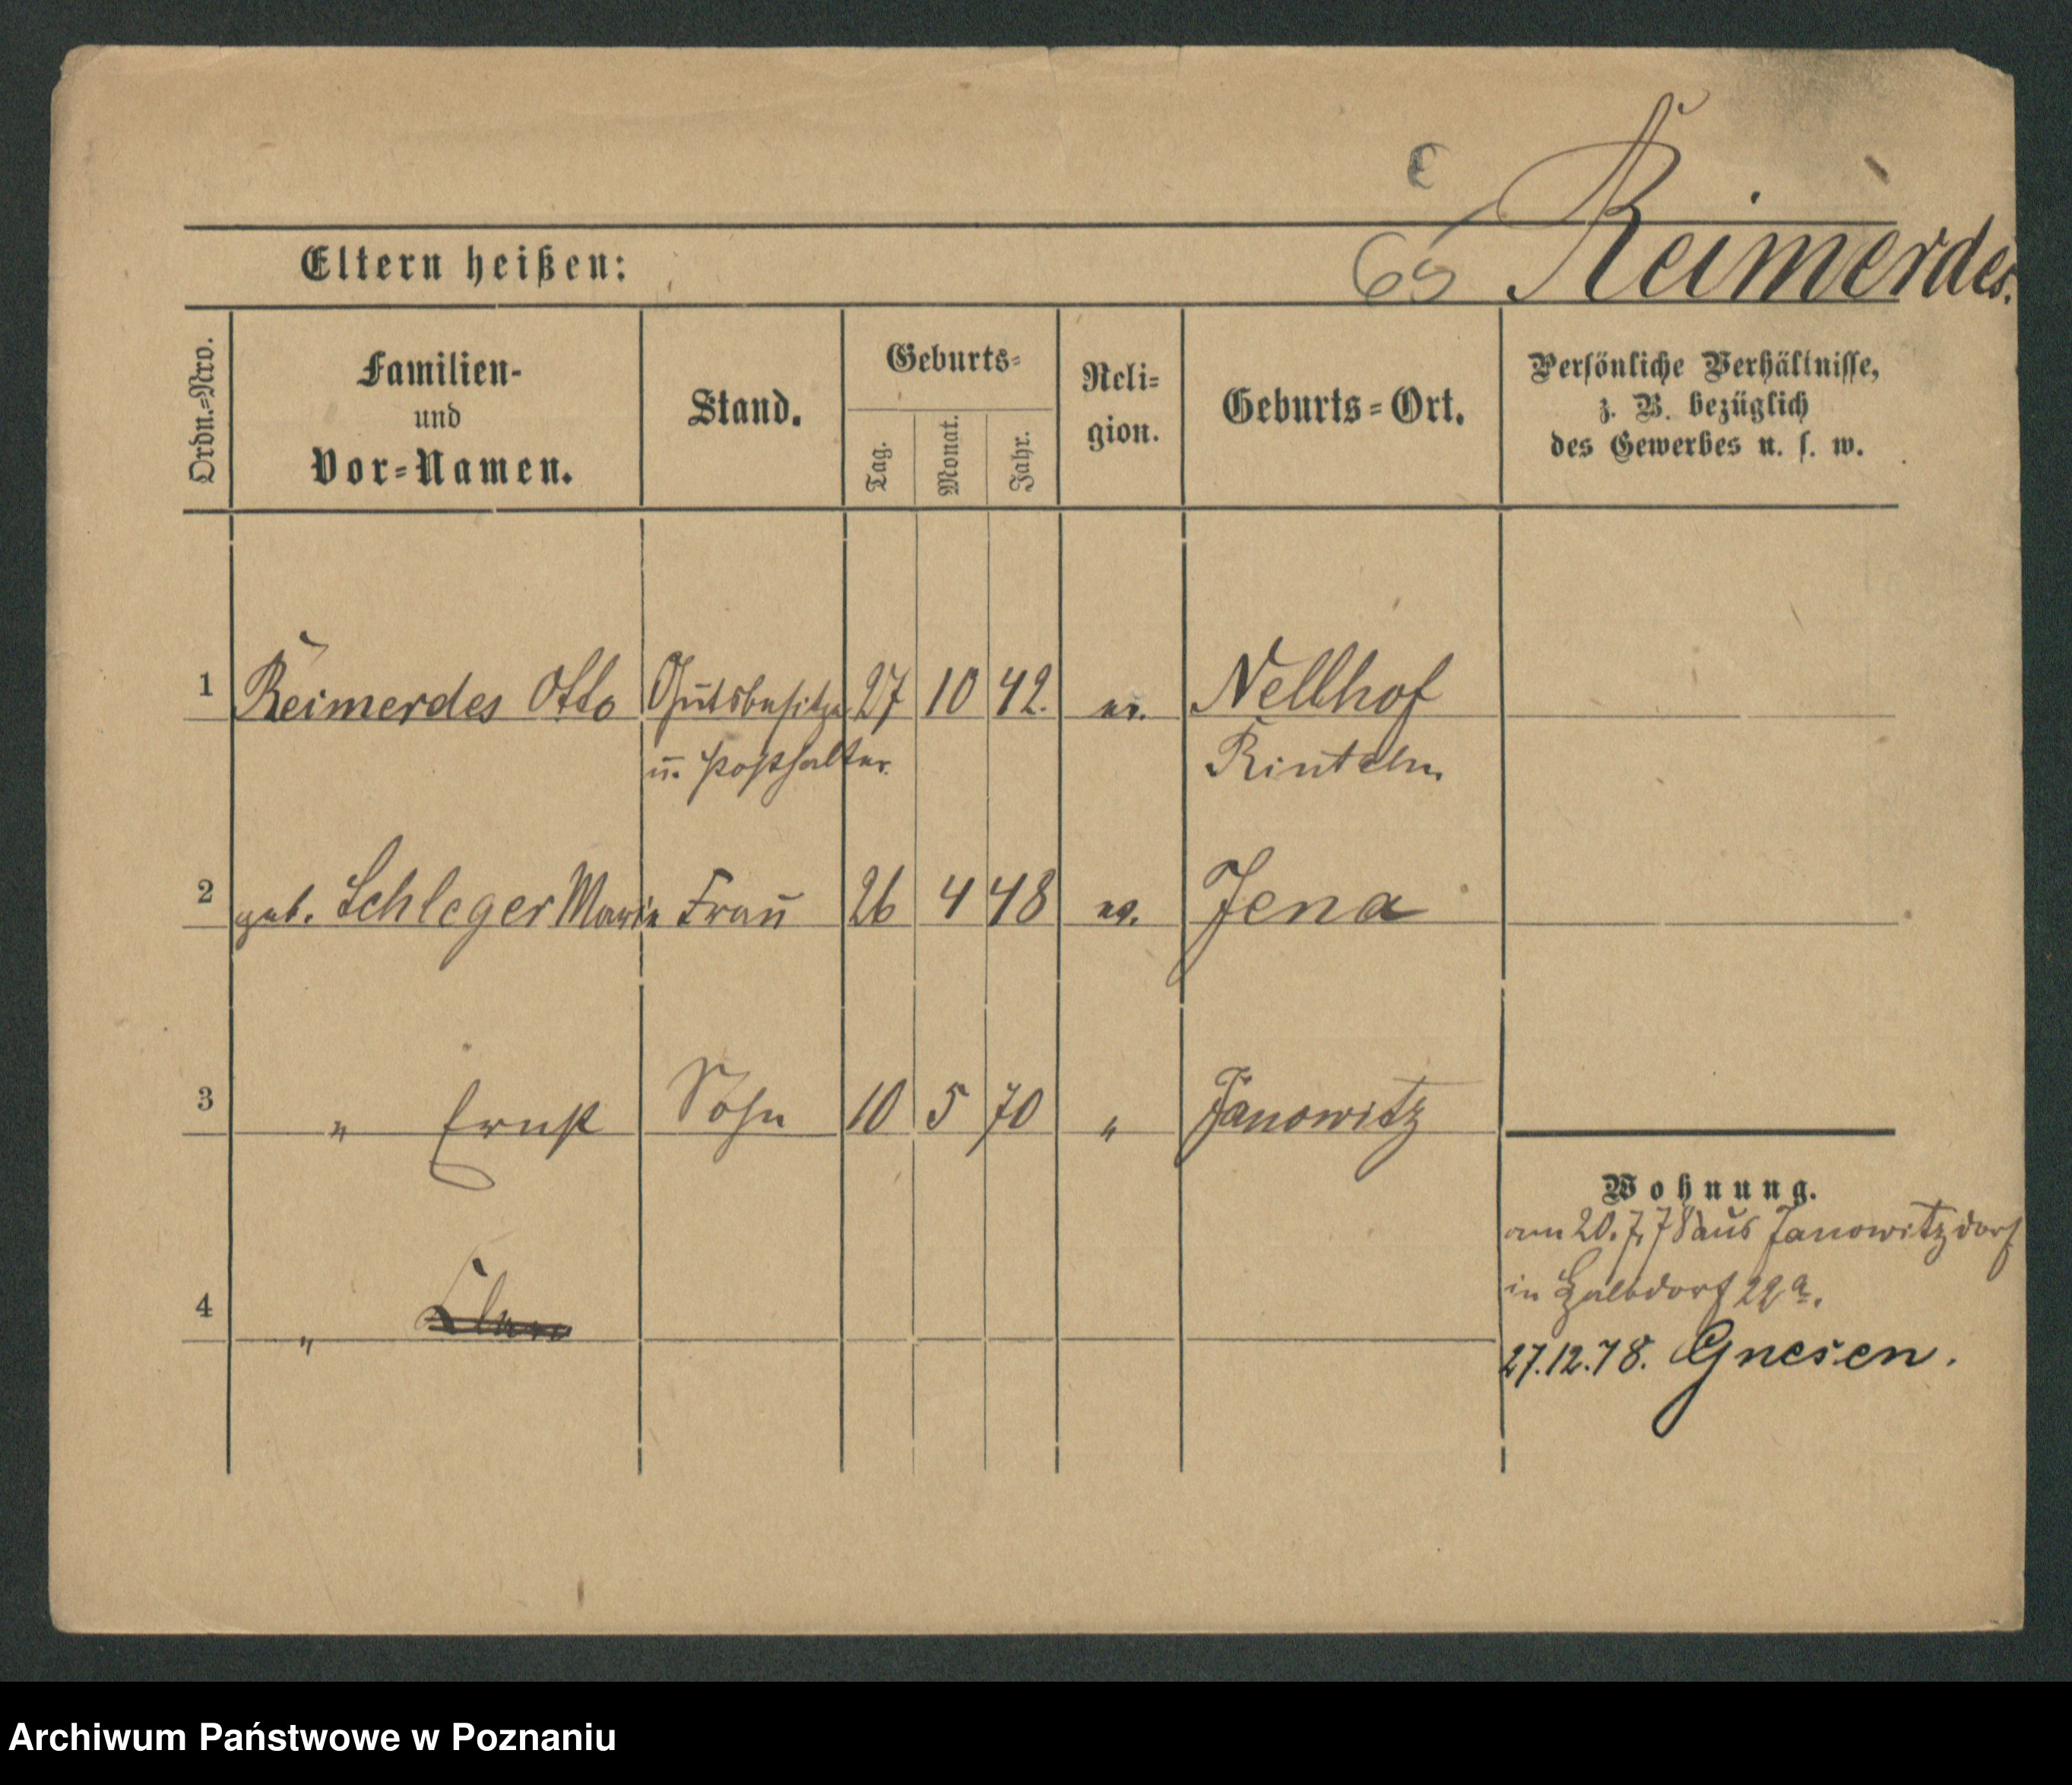 Reimerdes.
Eltern heißen: 65
Ordn.=Nro.
Familien-
und
Vor=Namen.
Stand.
Geburts=
Tag.
Monat.
Jahr.
Reli=
gion.
Geburts=Ort.
Persönliche Verhältnisse,
z. B. bezüglich
des Gewerbes u. s. w.
1 Reimerdes Otto Gutsbesitzer 27 10 42. ev. Nellhof
u. Posthalter. Rinteln
2 geb. Schleger Marie Frau 26 4 48 ev. Jena
3 " Ernst Sohn 10 5 70 " Janowitz
4 "
Wohnung.
am 20.7.78 aus Janowitz dorf
in 22a.
27.12.78. Gnesen.
Archiwum Państwowe w Poznaniu